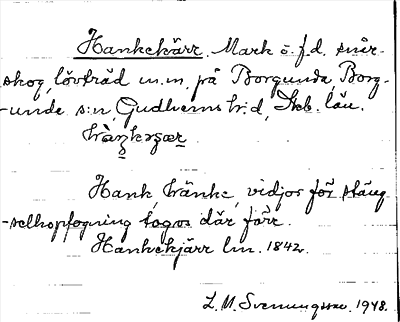 Hankekärr. Mark ö. f. d. snår-
skog, lövträd m.m. på Borgunda, Borg-
-unda s:n, Gudhems h:d, Skb. län.

Hank, hänke, vidjor för stäng
-selhopfogning togos där förr.
Hankekjärr lm. 1842.
L. M. Svenungsson. 1948.